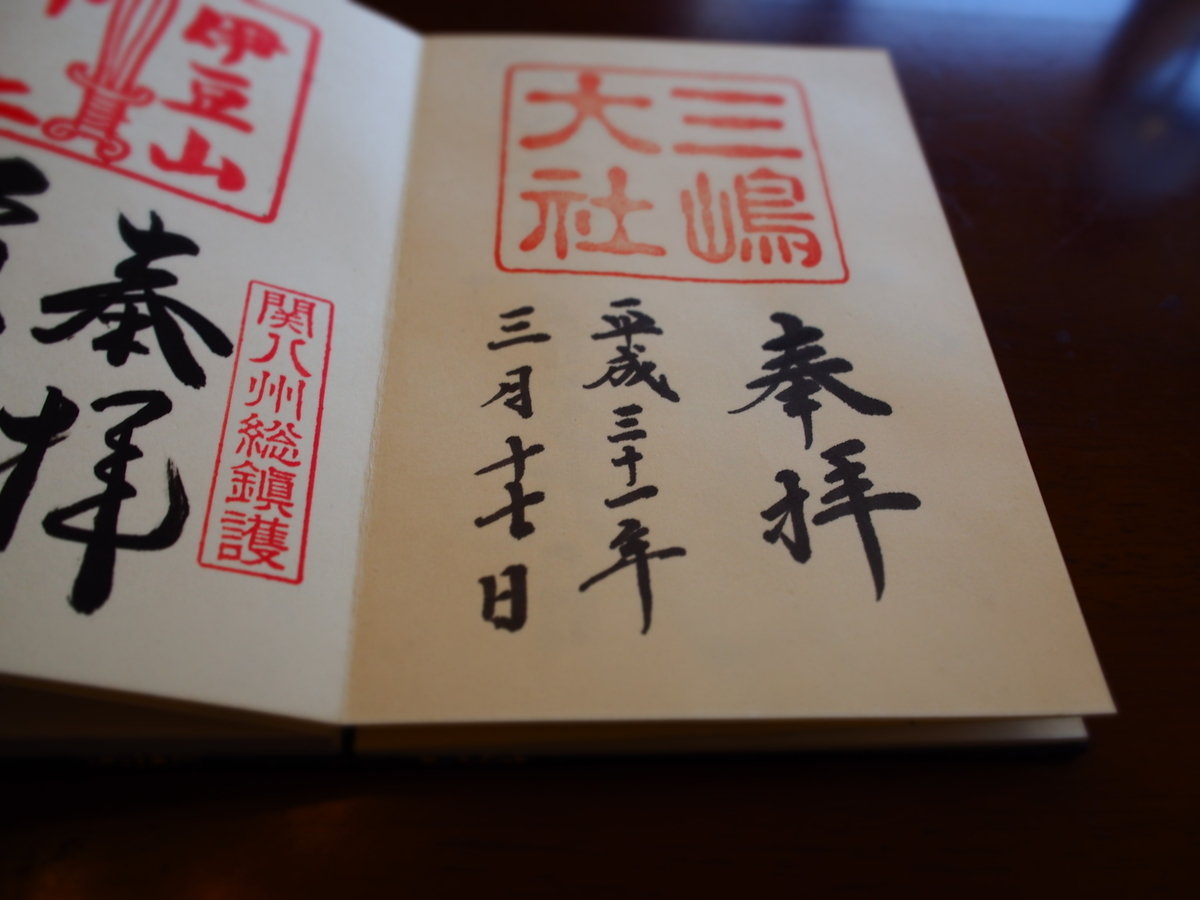 三嶋
大社
奉拝
平成三十一年
三月十七日
伊豆山
関八州総鎮護
奉拝